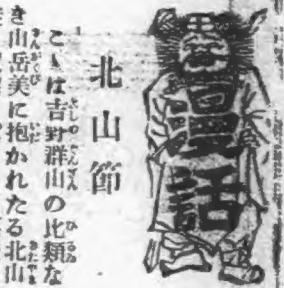 話
北山節
こゝは吉野群山の比類な
き山岳美に抱かれたる北山